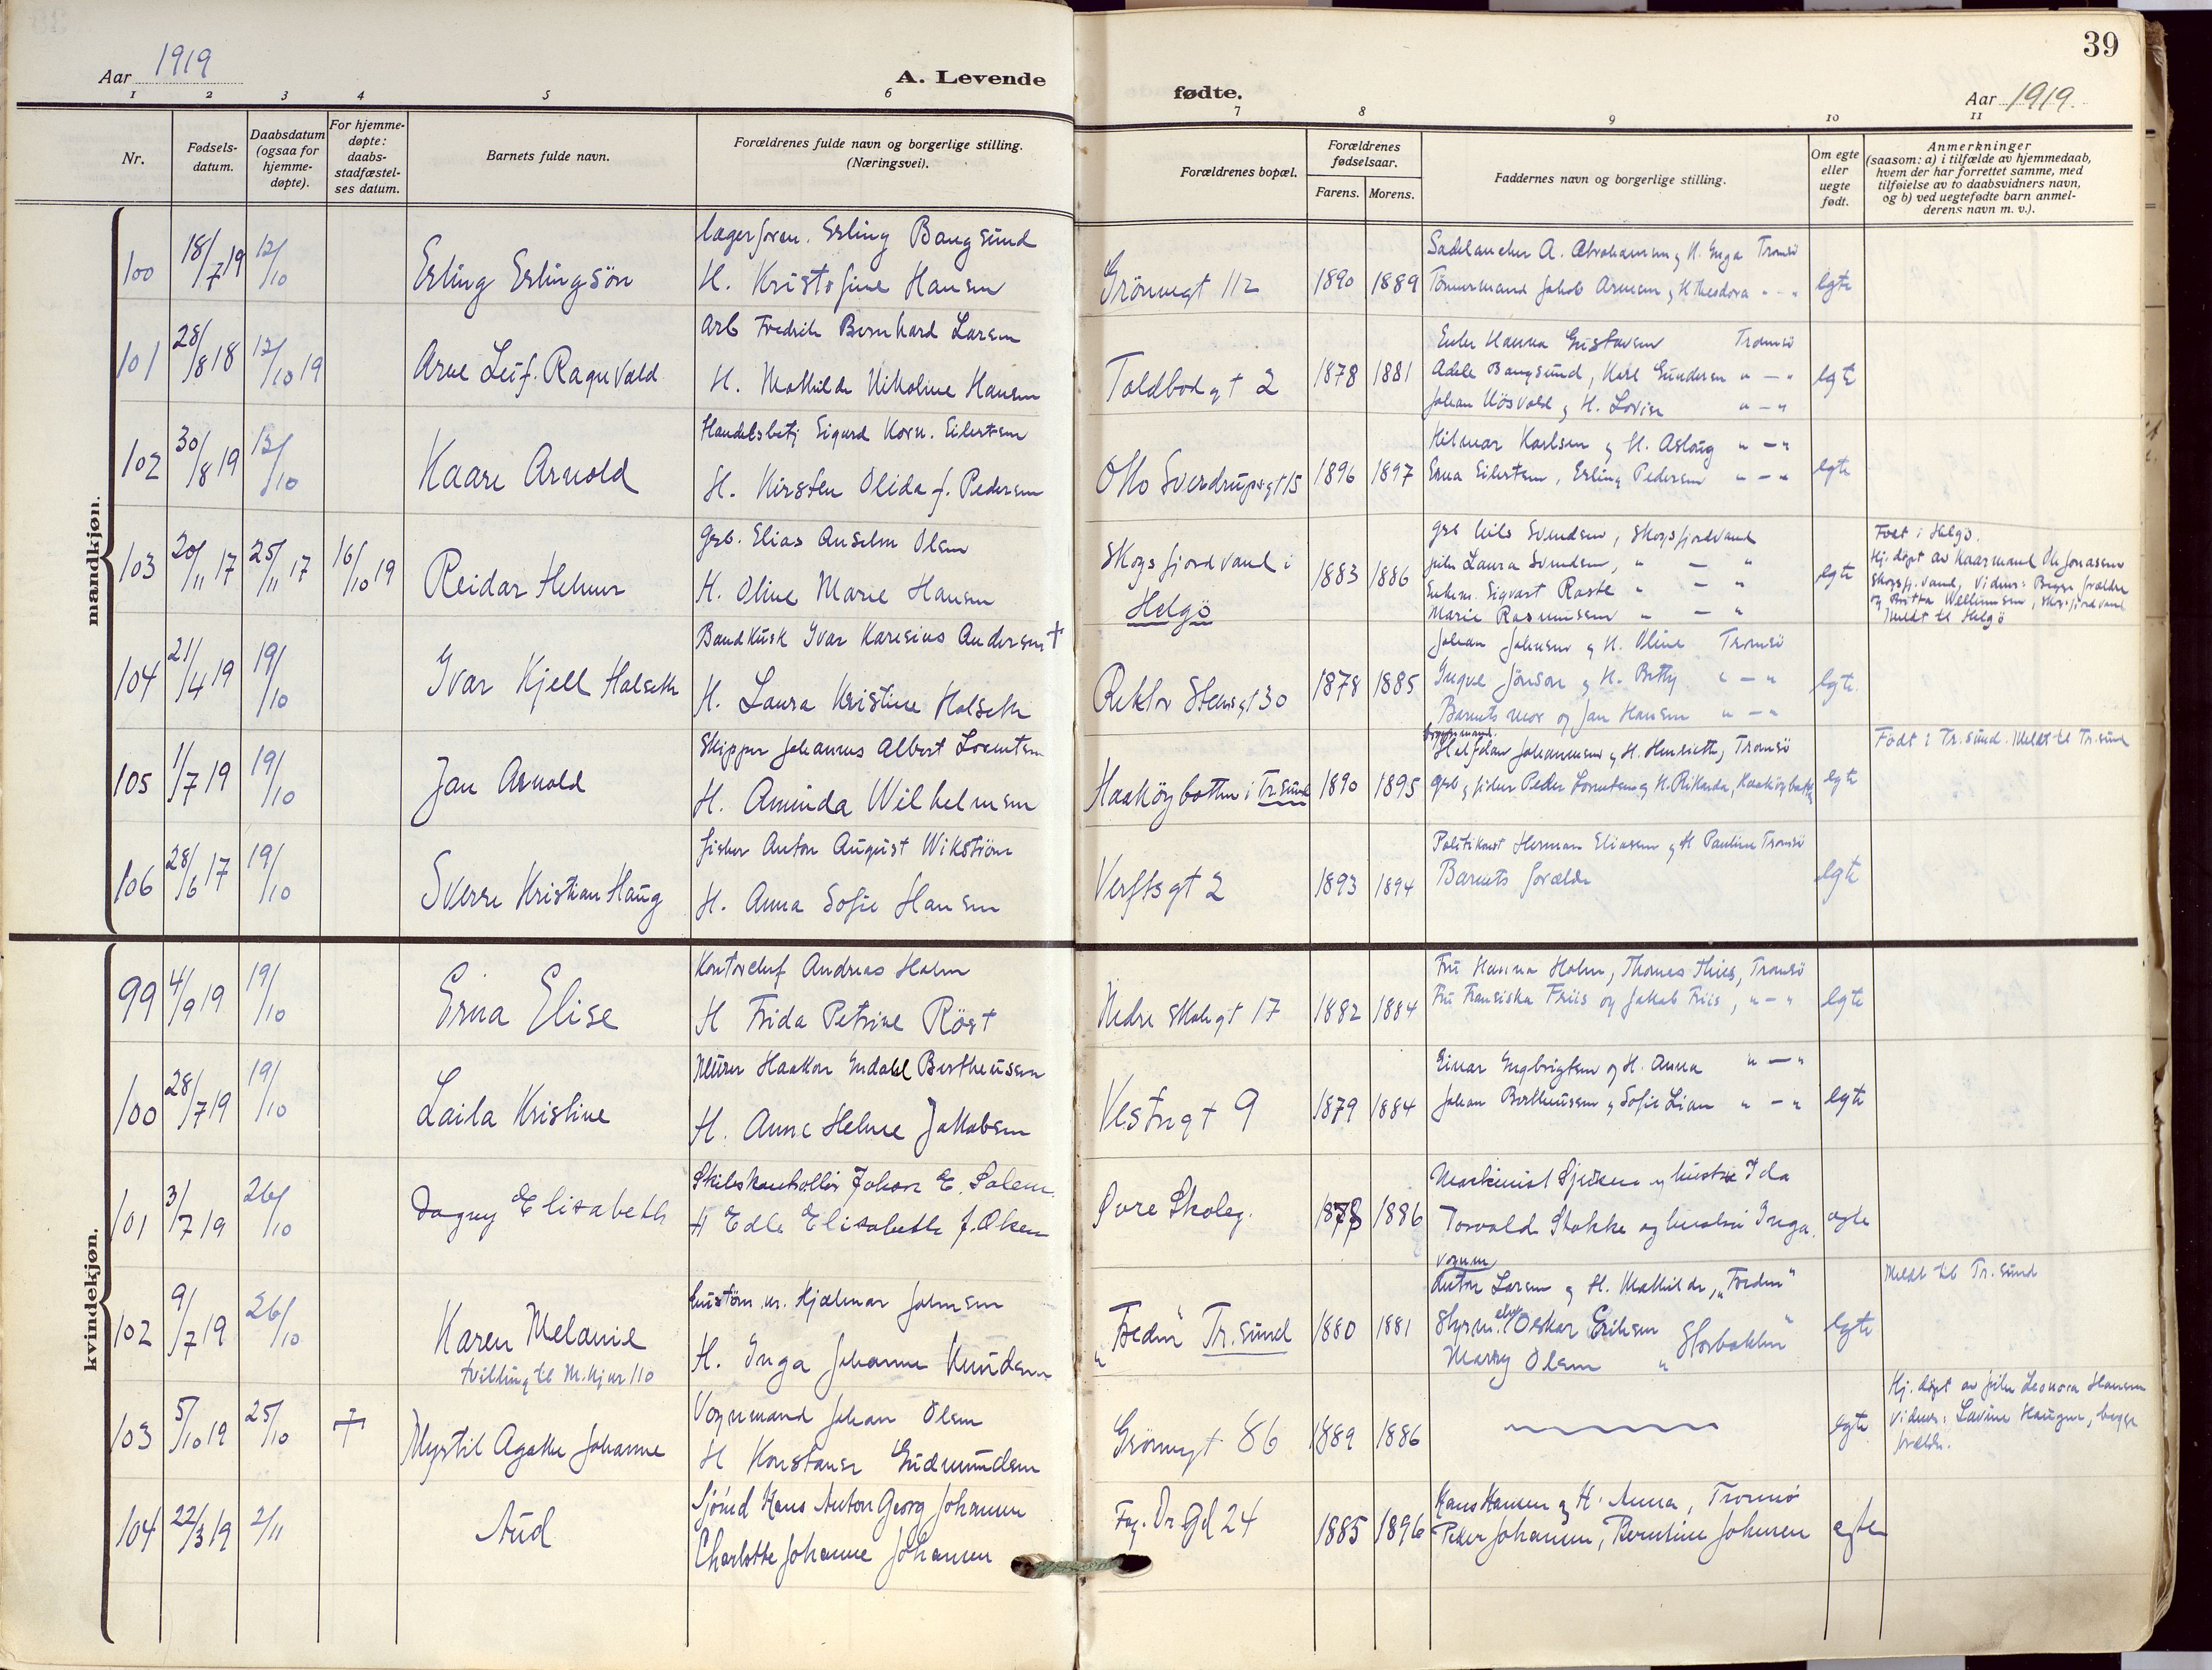 39
Aar 1919
A. Levende fødte.
Aar 1919.
1 2 3 4 5 6 7 8 9 10 11
Nr.
Fødsels-
datum.
Daabsdatum
(ogsaa for
hjemme-
døpte).
For hjemme-
døpte:
daabs-
stadfæstel-
ses datum.
Barnets fulde navn.
Forældrenes fulde navn og borgerlige stilling.
(Næringsvei).
Forældrenes bopæl.
Forældrenes
fødselsaar.
Farens. Morens.
Faddernes navn og borgerlige stilling.
Om egte
eller
uegte
født.
Anmerkninger
(saasom: a) i tilfælde av hjemmedaab,
hvem der har forrettet samme, med
tilføielse av to daabsvidners navn,
og b) ved uegtefødte barn anmel-
derens navn m. v.).
mandkjøn.
100 18/7 19 12/10 Erling Erlingsön
lagerform. Erling Bangsund
H. Kristofine Hansen
Grönnegt 112 1890 1889
A. Abrahamsen og H. Inga Tromsö
Tömmermand Jakob Arnesen og H Theodora " - "
egte
101 28/8 18 12/10 19 Arne Leif. Ragnvald
Arb Fredrik Bernhard Larsen
H. Mathilde Nikoline Hansen
Toldbodgt 2 1878 1881
Enke Hanna Gustavsen Tromsö
Adele Bangsund, Karl Gundersen " - "
Johan Mösvold og H. Lovise " - "
egte
102 30/8 19 12/10 Kaare Arnold
Handelsbetj Sigurd Korn. Eilertsen
H. Kirsten Olida f. Pedersen
Otto Sverdrupsgt 15 1896 1897
Hilmar Karlsen og H. Aslaug " - "
Erna Eilertsen, Erling Pedersen " - "
egte
103 20/11 17 25/11 17 16/10 19 Reidar Helmer
Grb. Elias Anselm Olsen
H. Oline Marie Hansen
Skogsfjordvand i
Helgö
1883 1886
Grb Nils Svendsen, Skogsfjordvand
pike Laura Svendsen, " - "
Enkem. Sigvart Raste " - "
Marie Rasmussen " - "
egte
Födt i Helgö.
Hj. döpt av kaarmand Ole Jonassen
Skogsfj. vand, Vidner: Begge forældre
og Britta Wellemsen, Skogsfjordvand
Meldt til Helgö
104 21/4 19 19/10 Ivar Kjell Halseth
Baudkusk Ivar Karesius Andersen +
H. Laura Kristine Halseth
Rektor Stensgt 30 1878 1885
Johan Johnsen og H. Oline Tromsö
Ingvel Jönson og H. Betty " - "
Barnets mor og Jan Hansen " - "
egte.
105 1/7 19 19/10 Jan Arnold
Skipper Johannes Albert Lorentsen
H. Aminda Wilhelmsen
Haaköybotten i Tr.sund 1890 1895
Halfdan Johannesen og H. Henriette, Tromsö
Grb og fisker Peder Lorentsen og H. Rikarda, Haaköybotten
egte
Födt i Tr. sund. Meldt til Tr. sund
106 28/6 17 19/10 Sverre Kristian Haug
fisker Anton August Wikström
H. Anna Sofie Hansen
Verftsgt 2 1893 1894
Politikonst Herman Eliasen og H Pauline Tromsö
Barnets forældre
egte
kvindekjøn.
99 4/9 19 19/10 Erna Elise
Kontorchef Andreas Holm
H Frida Petrine Röst
Nedre Skolegt 17 1882 1884
Fru Hanna Holm, Thomas Thiis, Tromsö
Fru Fransiska Friis og Jakob Friis, " - "
egte
100 28/7 19 19/10 Laila Kristine
Murer Haakon Endahl Bertheussen
H. Anne Helene Jakobsen
Vestregt 9 1879 1884
Einar Engbrigtsen og H. Anna " - "
Johan Bertheussen og Sofie Lian " - "
egte
101 3/7 19 26/10 Dagny Elisabeth
Skibskontrollör Johan E. Solem.
H Edle Elisabeth f. Olsen
Øvre Skoleg. 1878 1886
Maskinist og hustru Ida
Torvald Stokke og hustru Inga.
egte
102 9/7 19 26/10 Karen Melanie
tvilling til M.kjøn 110
Hjalmar Johnsen
H. Inga Johanne Knudsen
"Fredm" Tr. sund 1880 1881
Vognm
Anton Larsen og H. Mathilde, "Fredm"
Styrm. elev Oskar Eriksen "Storbakken"
Marry Olsen "
egte
Meldt til Tr. sund
103 5/10 19 25/10 + Myrtil Agathe Johanne
Vognmand Johan Olsen
H Konstanse Gudmundsen
Grönnegt 86 1889 1886
egte
Hj. döpt av pike Leonora Hansen
Vidner: Lavine Haugen, begge
forældre.
104 22/3 19 2/11 Aud
Sjömd Hans Anton Georg Johansen
Charlotte Johanne Johansen
Fog. Dr Gd 24 1885 1896
Hans Hansen og H. Anna, Tromsö
Peder Johansen, Berntine Johnsen
egte